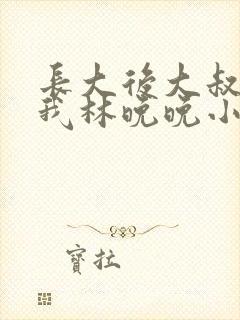 長大後大叔
我林晚晚小
寶拉